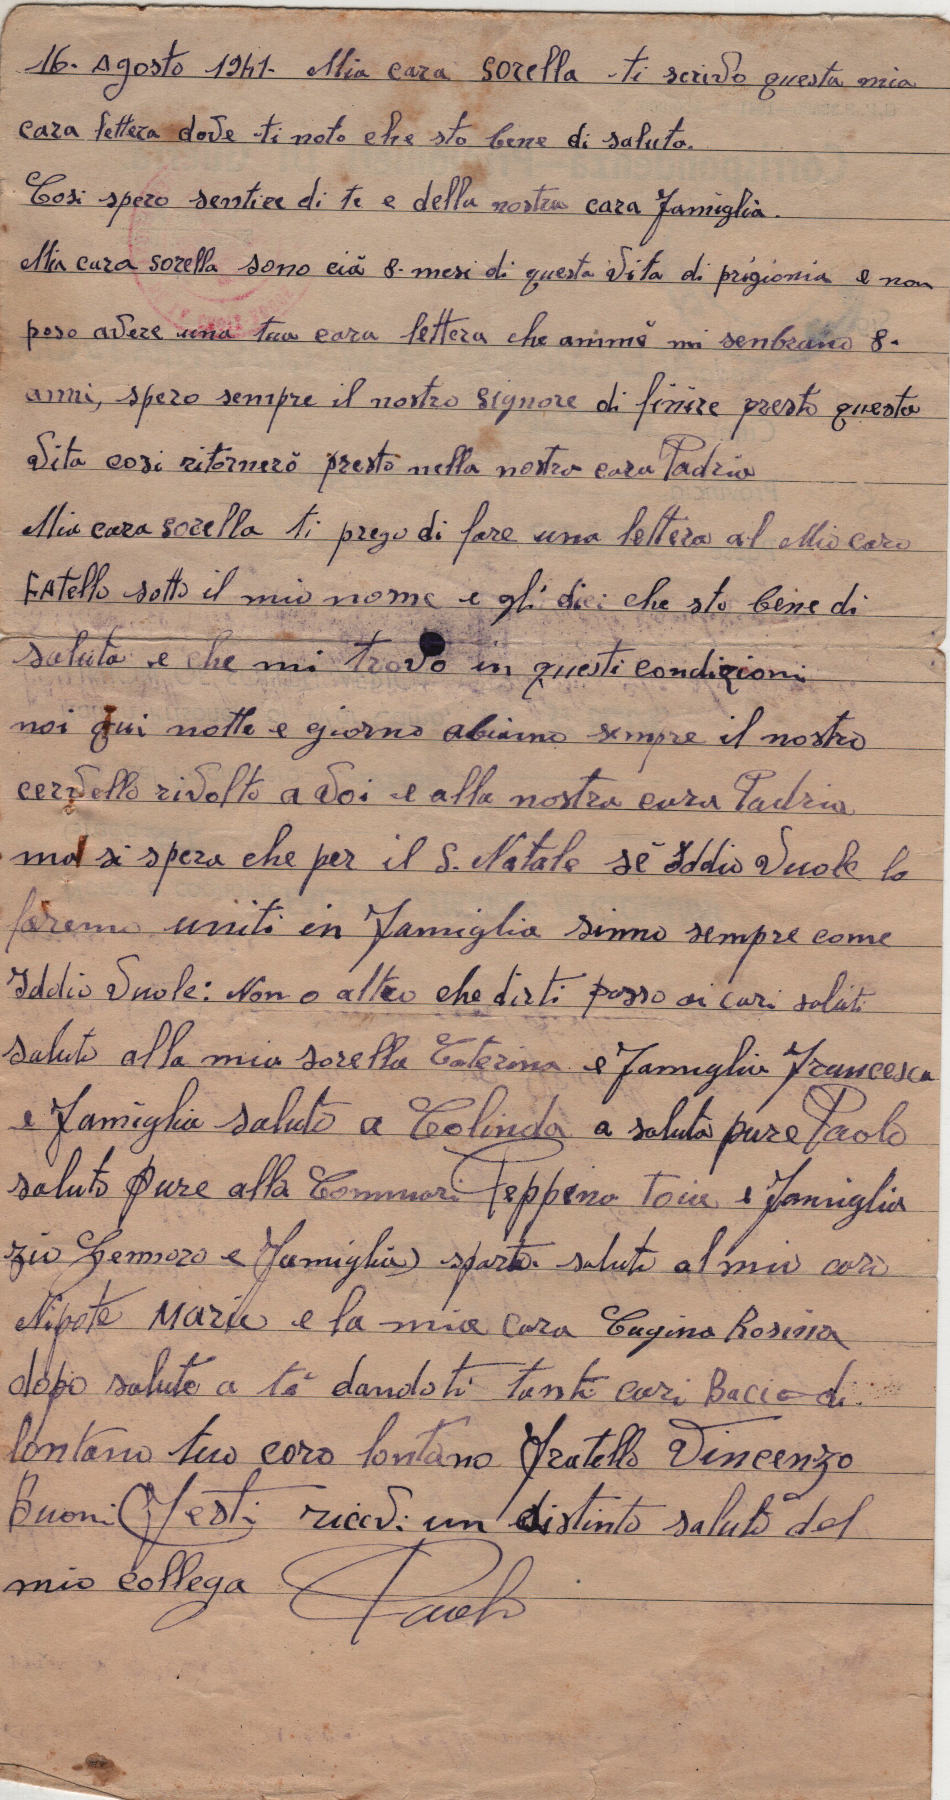 16. Agosto 1941. Mia cara sorella ti scrivo questa mia
cara lettera dove ti noto che sto bene di saluta.
Cosi spero sentire di te e della nostra cara Famiglia.
Mia cara sorella sono ciá 8. mesi di questa vita di prigionia e non
poso avere una tua cara lettera che ammé mi senbrano 8.
anni, spero sempre il nostro Signore di finire presto questa
vita cosi ritorneró presto nella nostra cara Padria
Mia cara sorella ti prego di fare una lettera al Mio caro
Fatello sotto il mio nome e gli dici che sto bene di
saluta e che mi trovo in questi condizioni
noi qui notte e giorno abiamo sempre il nostro
cervello rivolto a voi e alla nostra cara Padria
ma si spera che per il S. Natale sé Iddio vuole lo
faremo uniti in Famiglia sinno sempre come
Iddio vuole: Non o altro che dirti posso ai cari saluti
saluto alla mia sorella Caterina e Famiglia Francesca
e Famiglia saluto a Colinda a saluta pure Paolo
saluto pure alla Commari Peppina e Famiglia
zio Gennaro e Famiglia saluti al mio caro
Nipote Maria e la mia cara Cugina Rosina
dopo saluto a té dandoti tanti cari Bacio di
lontano tuo caro lontano Fratello Vincenzo
Buoni Festi ricevi un distinto saluto del
mio collega Paolo